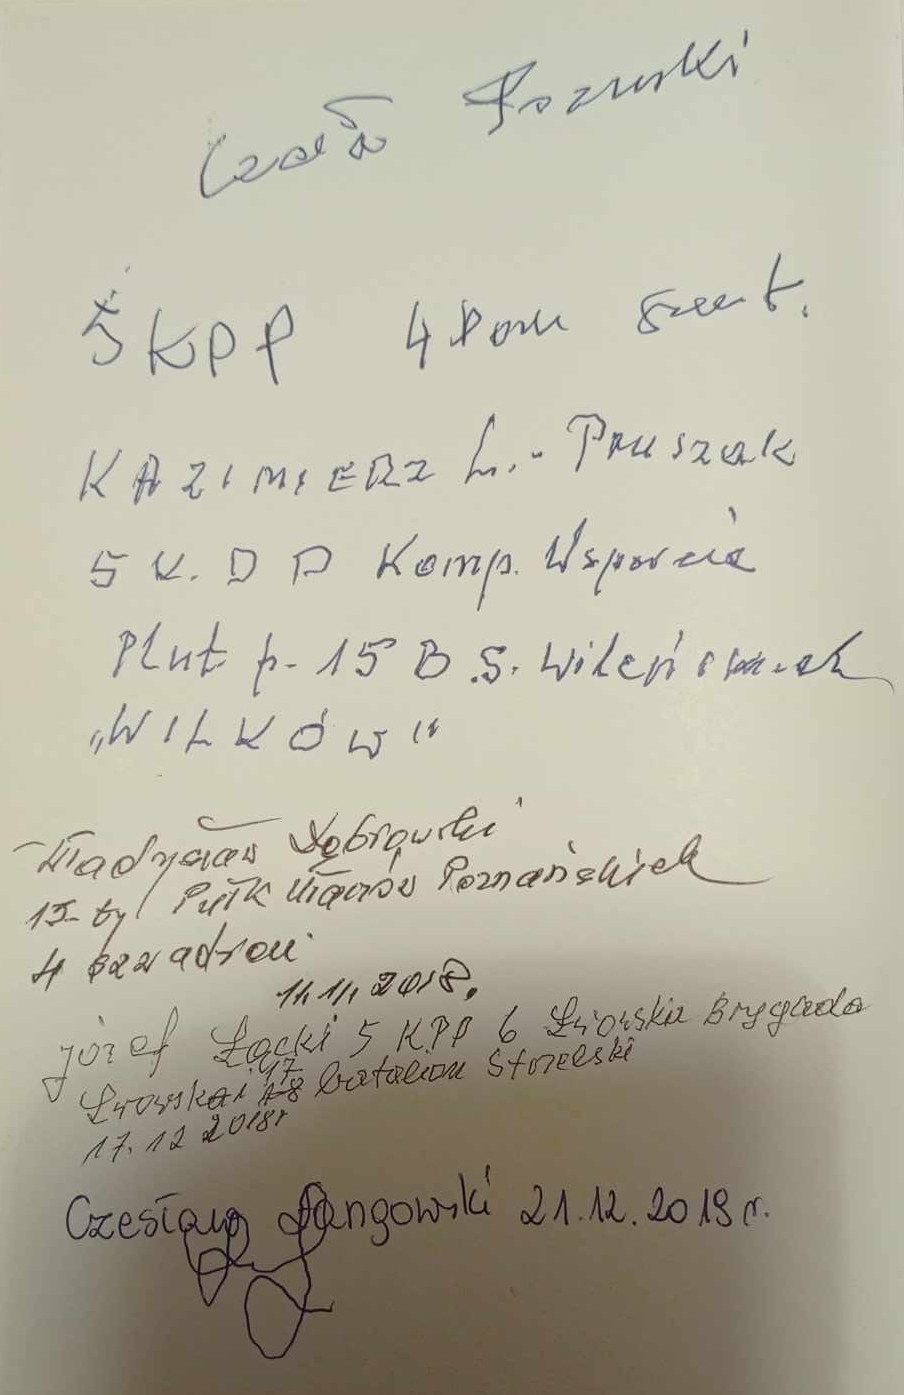 ŚKPP 4 Pom
KAZIMIERZ L.- Pruszak
5 K. D P Komp. Wsparcia
Plut p. 15 B.S. Wileńskich
„WILKÓW"
Władysław Dąbrowski
15-ty Pułk Ułanów Poznańskich
4 szwadron
11.11.2018.
Józef Łącki 5 KPP 6 Lwowska Brygada
Lwowska 17 batalion Strzelski
17.12 2018r
Czesław Dangowski 21.12.2019 r.